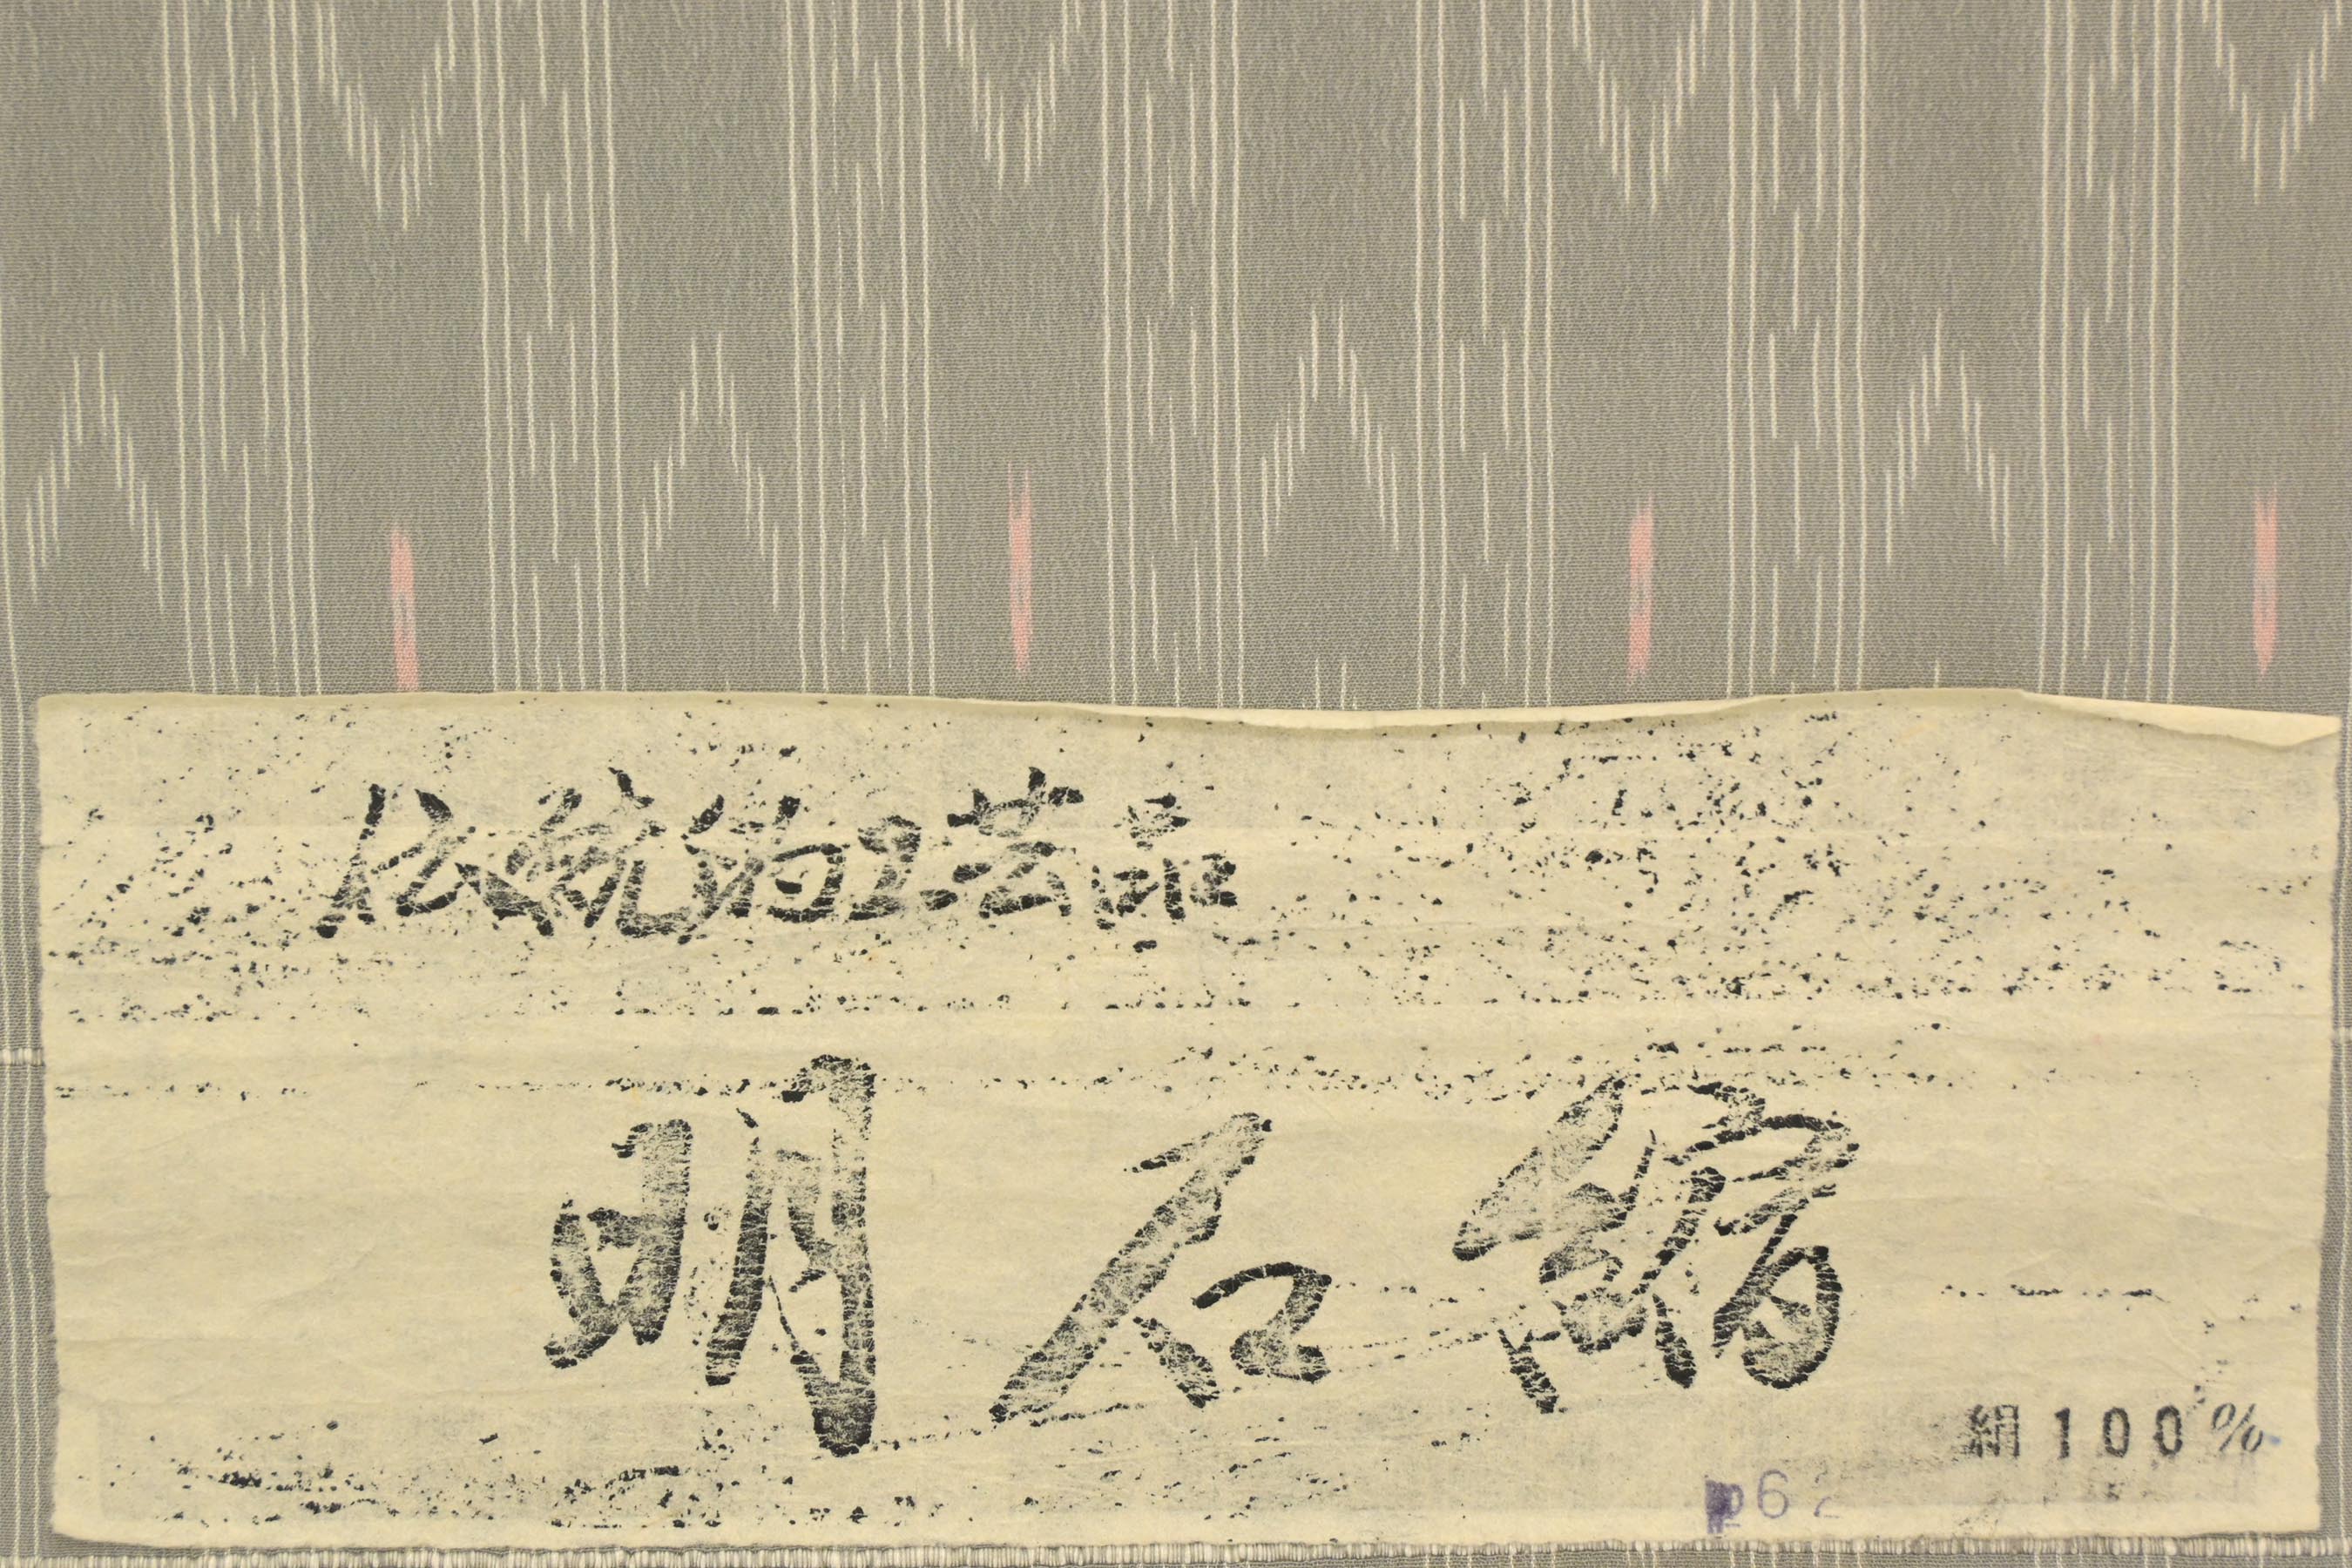 伝統的工芸品
明石縮
絹100%
p62